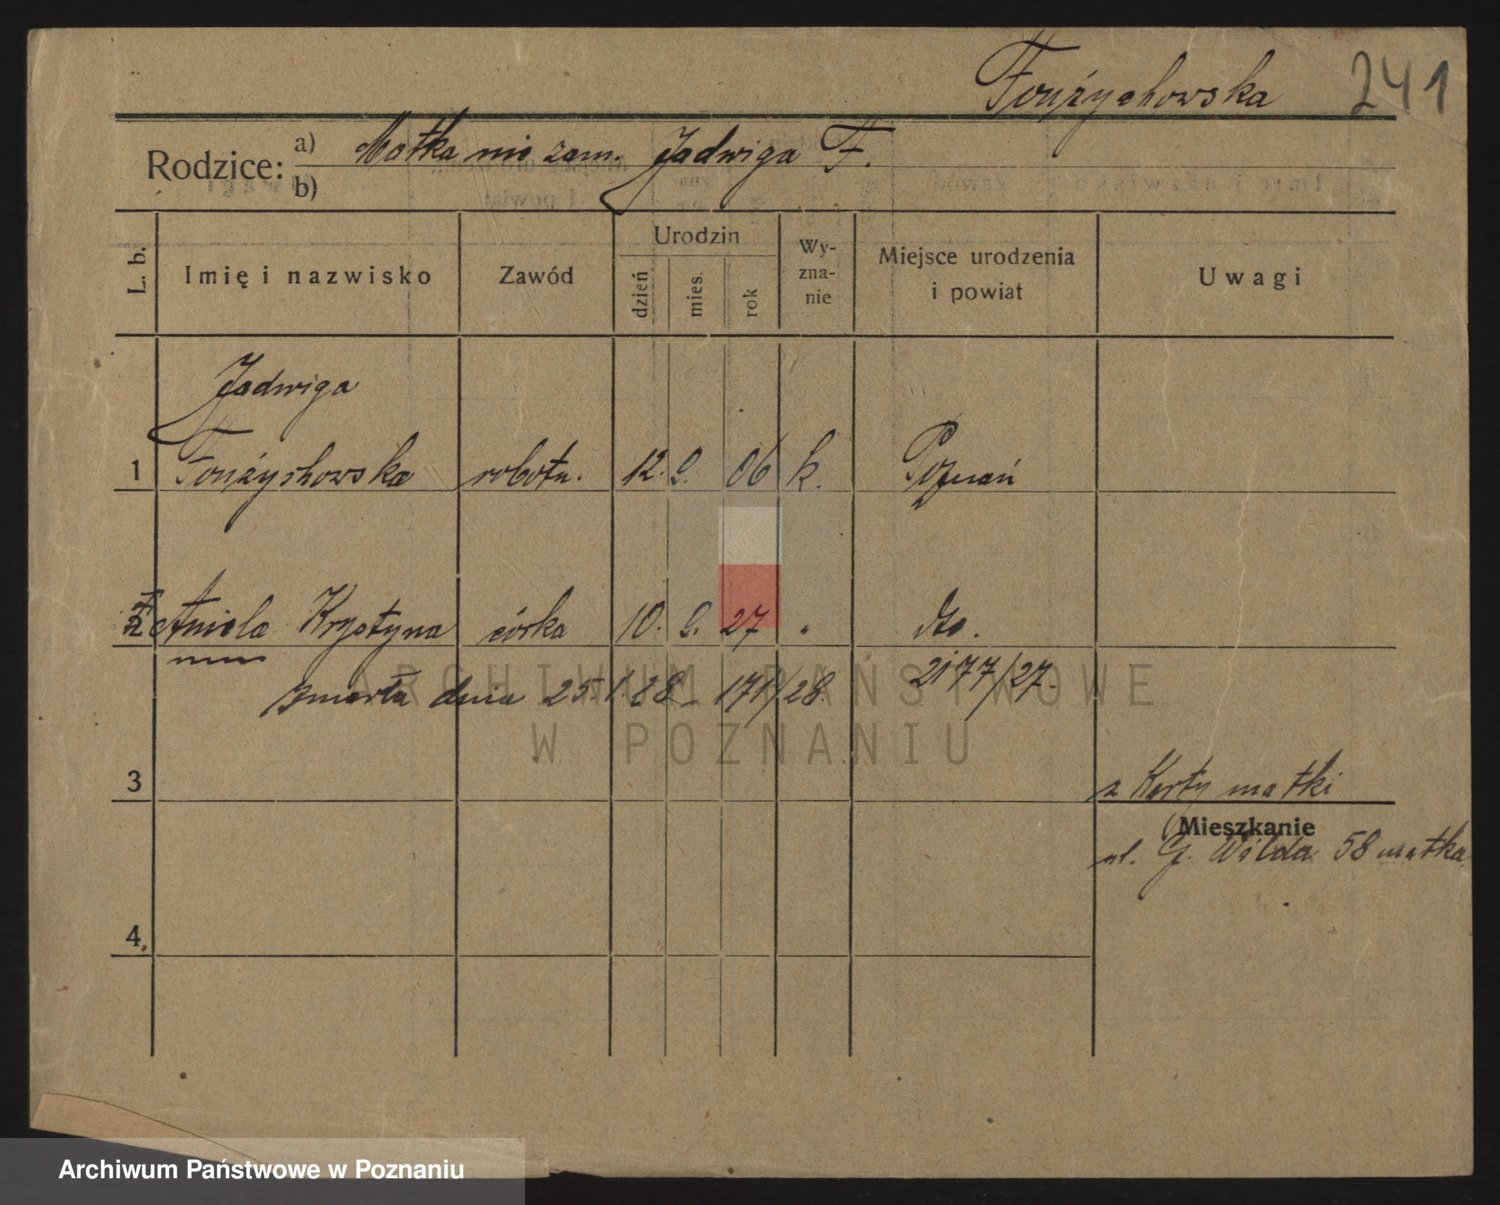 Fonżychowska 241
Rodzice: a) Matka nie zam. Jadwiga F.
b)
L. b. Imię i nazwisko Zawód Urodzin dzień mies. rok Wy-zna-nie Miejsce urodzenia i powiat Uwagi
Jadwiga
1 Fonżychowska robotn. 12. 9. 06 k. Poznań
2 Aniela Krystyna córka 10. 9. 27 " dto.
2177/27.
zmarła dnia 25.1.28 – 171/28.
ARCHIWUM PAŃSTWOWE
W POZNANIU
3
z Karty matki
Mieszkanie
ul. G. Wilda 58 matka
4.
Archiwum Państwowe w Poznaniu